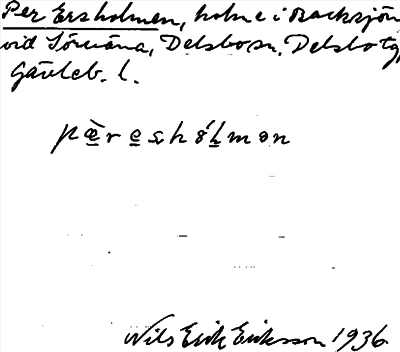 Per Ersholmen, holme i Backsjön
vid Sörväna, Delsbo sn. Delsbo tg,
Gävleb. l.
pæ̀rəshólmən
Nils Erik Eriksson 1936